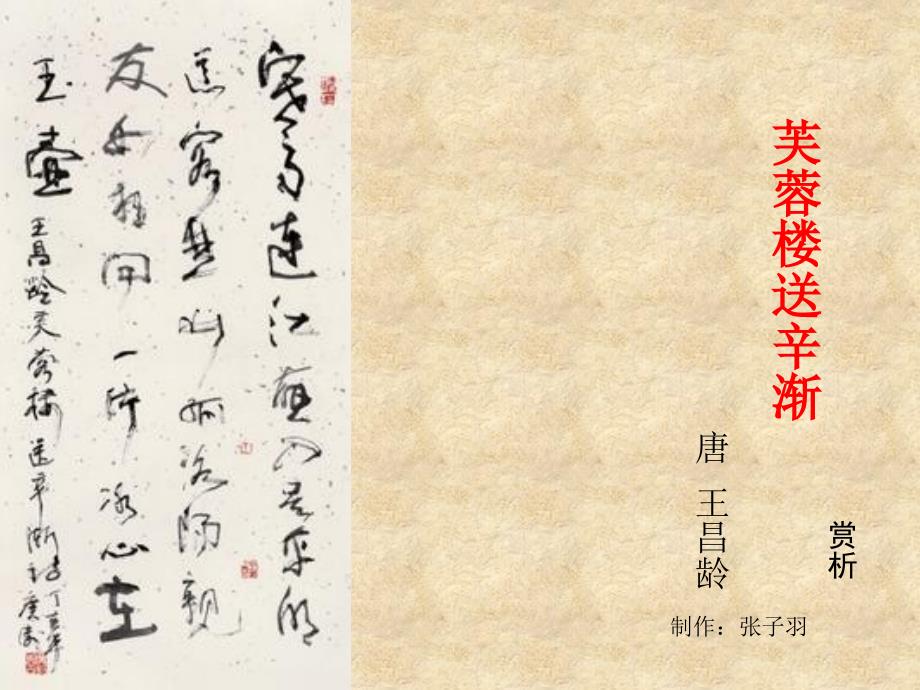 芙蓉楼送辛渐
赏析
唐 王昌龄
制作：张子羽
寒雨連江夜入吴平明
送客楚山孤洛陽親
友如相問一片冰心在
玉壺 王昌齡芙蓉樓送辛漸詩丁亥年